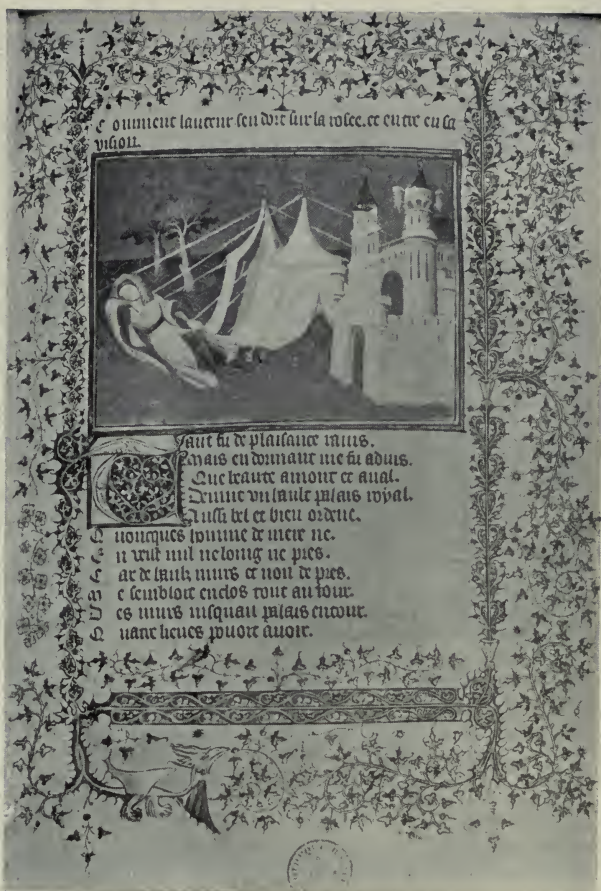 Comment lauteur sen dort sur la rosee. et entre en sa
vision.
Tant fu de plaisance
Mais en dormant me fu aduis.
Que leaute amont et aual.
Deuint vn hault palais royal.
Aussi bel et bien ordene.
Quoncques homme de mere ne.
Nen veist nul ne loing ne pres.
Car de haulz murs et non de pres.
Se sembloit enclos tout au tour.
Des murs iusquau palais entour.
Quatre lieues pouoit auoir.